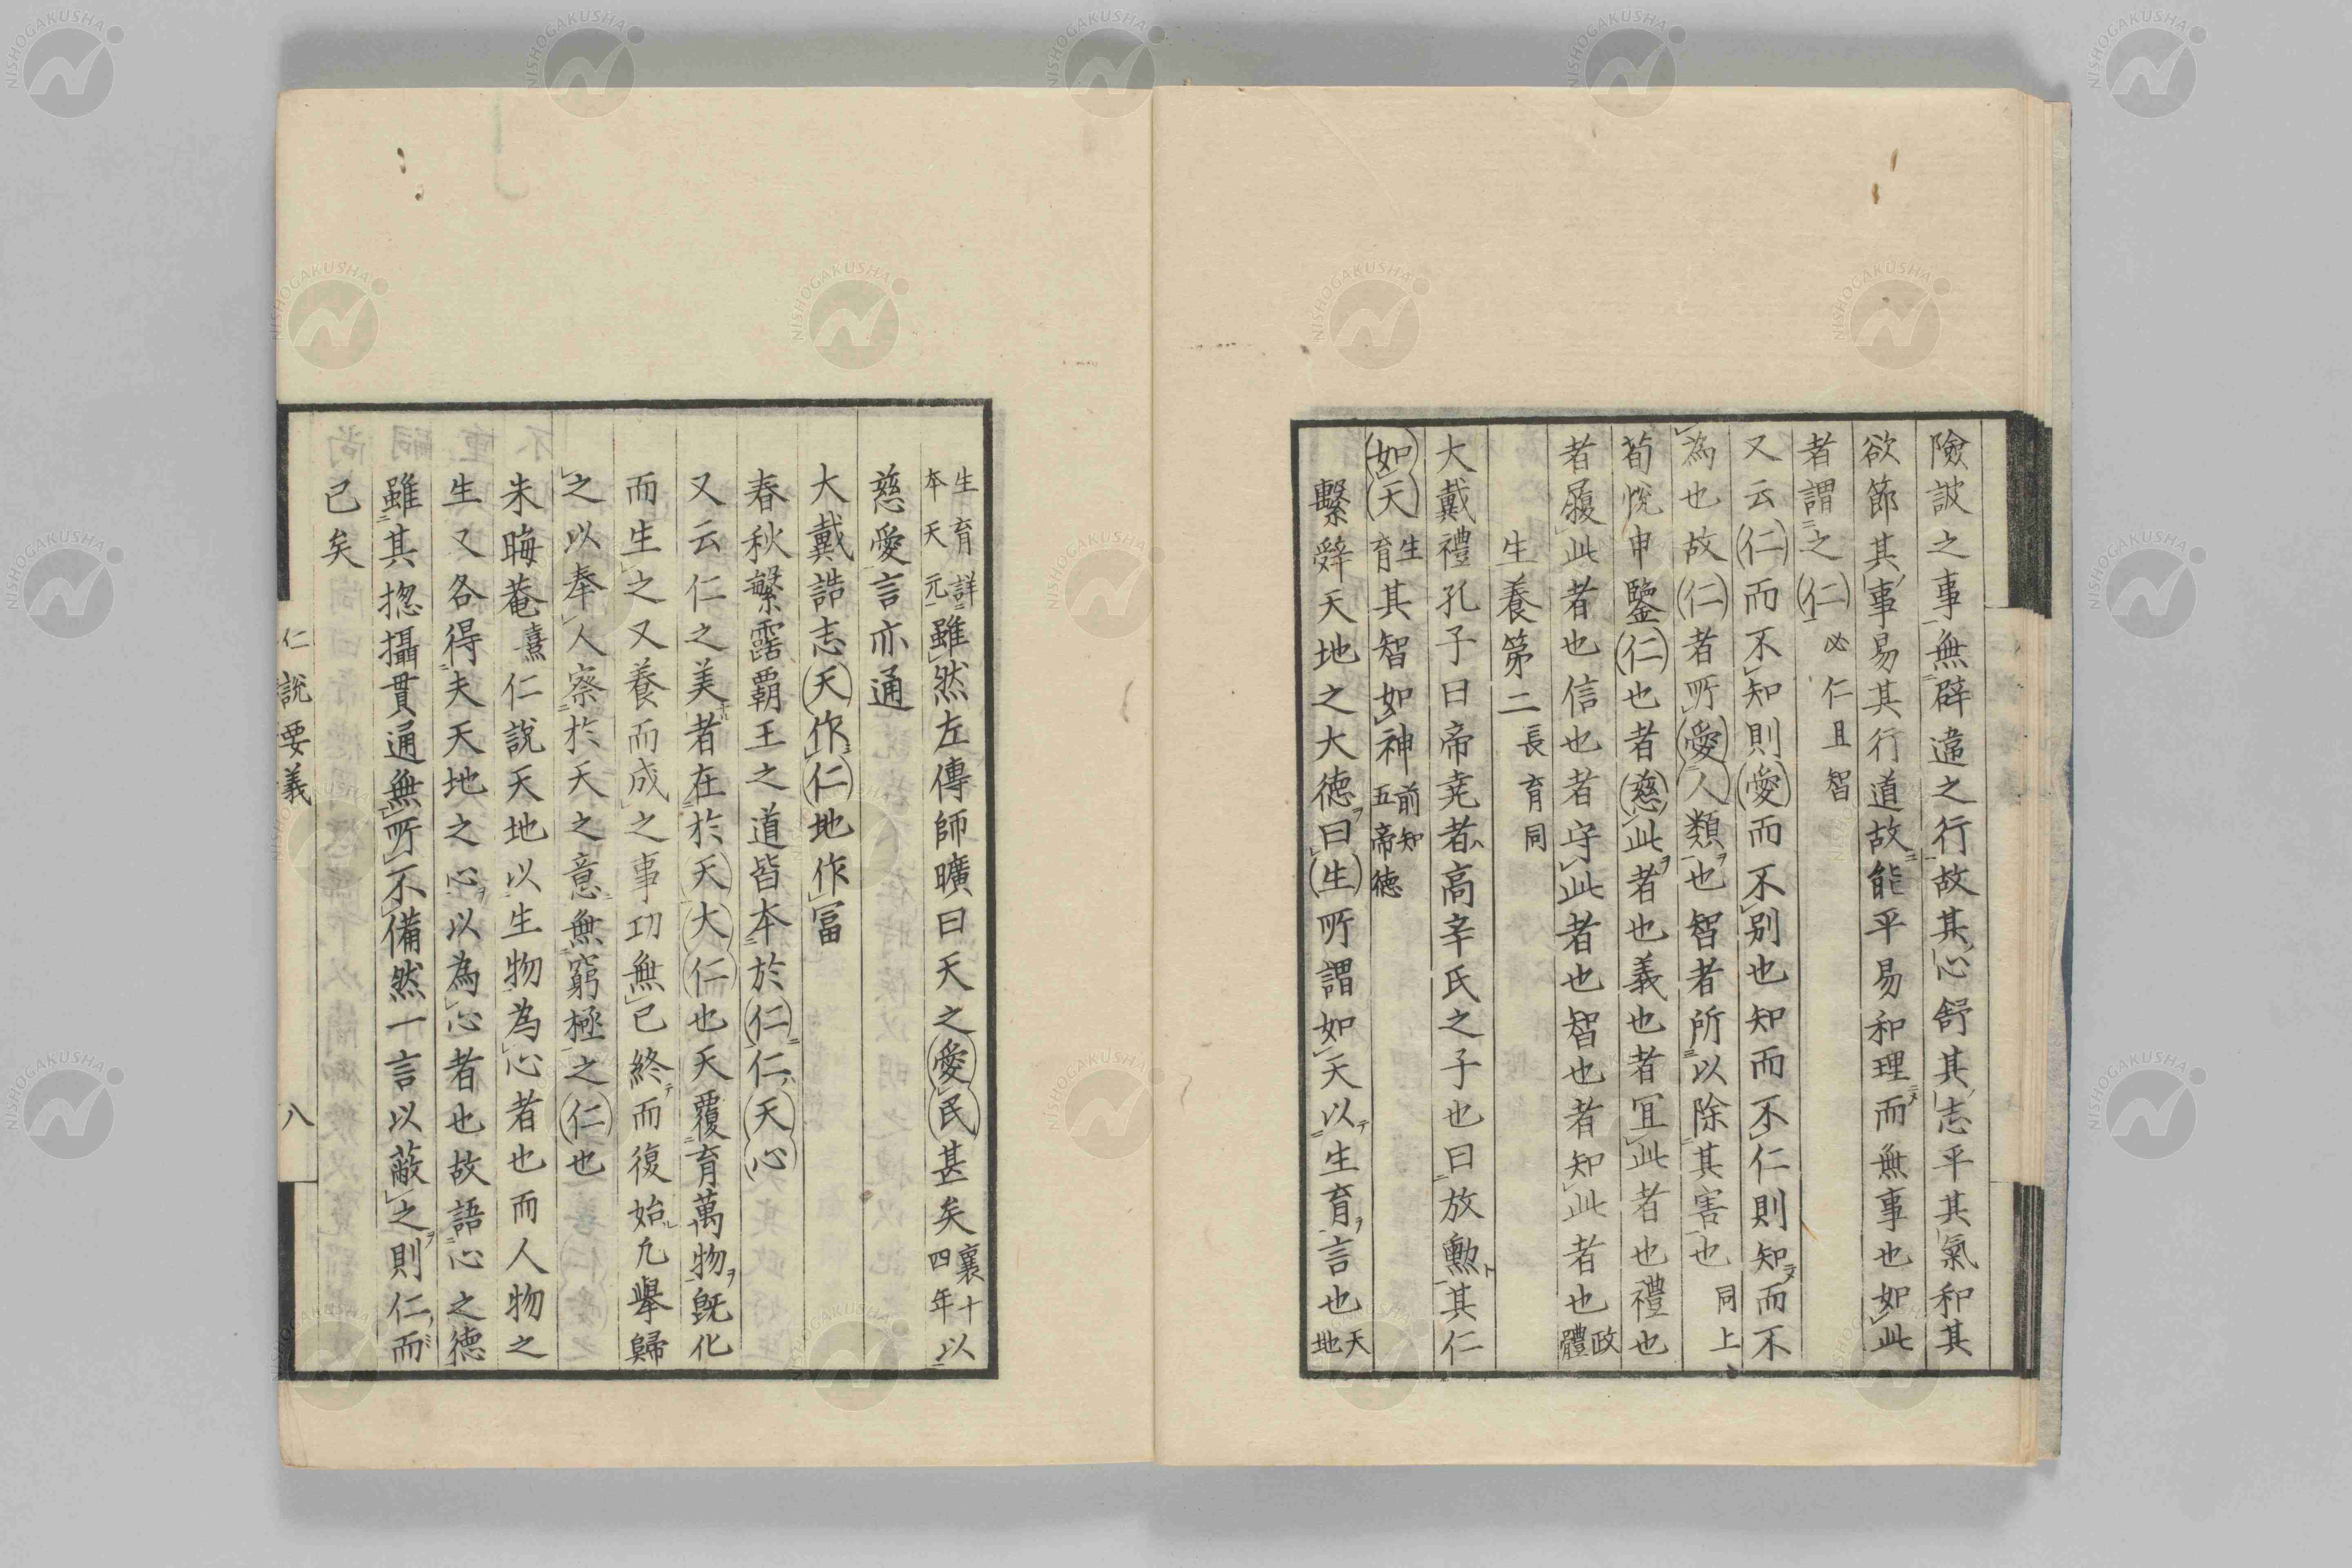 險詖之事無辟違之行故其心舒其志平其氣和其
欲節其事易其行道故能平易和理而無事也如此
者謂之仁必仁且智
又云仁而不知則愛而不別也知而不仁則知而不
為也故仁者所愛人類也智者所以除其害也同上
荀悅申鑒仁也者慈此者也義也者冝此者也禮也
者履此者也信也者守此者也智也者知此者也政體
生養第二長育同
大戴禮孔子曰帝堯者高辛氏之子也曰放勲其仁
如天生育其智如神前知五帝徳
繫辤天地之大徳曰生所謂如天以生育言也天地
生育詳本天元雖然左傳師曠曰天之愛民甚矣襄十四年以
慈愛言亦通
大戴誥志天作仁地作冨
春秋繁露覇王之道皆本於仁仁天心
又云仁之美者在於天天大仁也天覆育萬物既化
而生之又養而成之事功無已終而復始凢舉歸
之以奉人察於天之意無窮極之仁也
朱晦菴熹仁說天地以生物為心者也而人物之
生又各得夫天地之心以為心者也故語心之徳
雖其揔攝貫通無所不備然一言以蔽之則仁而
已矣
仁說要義 八